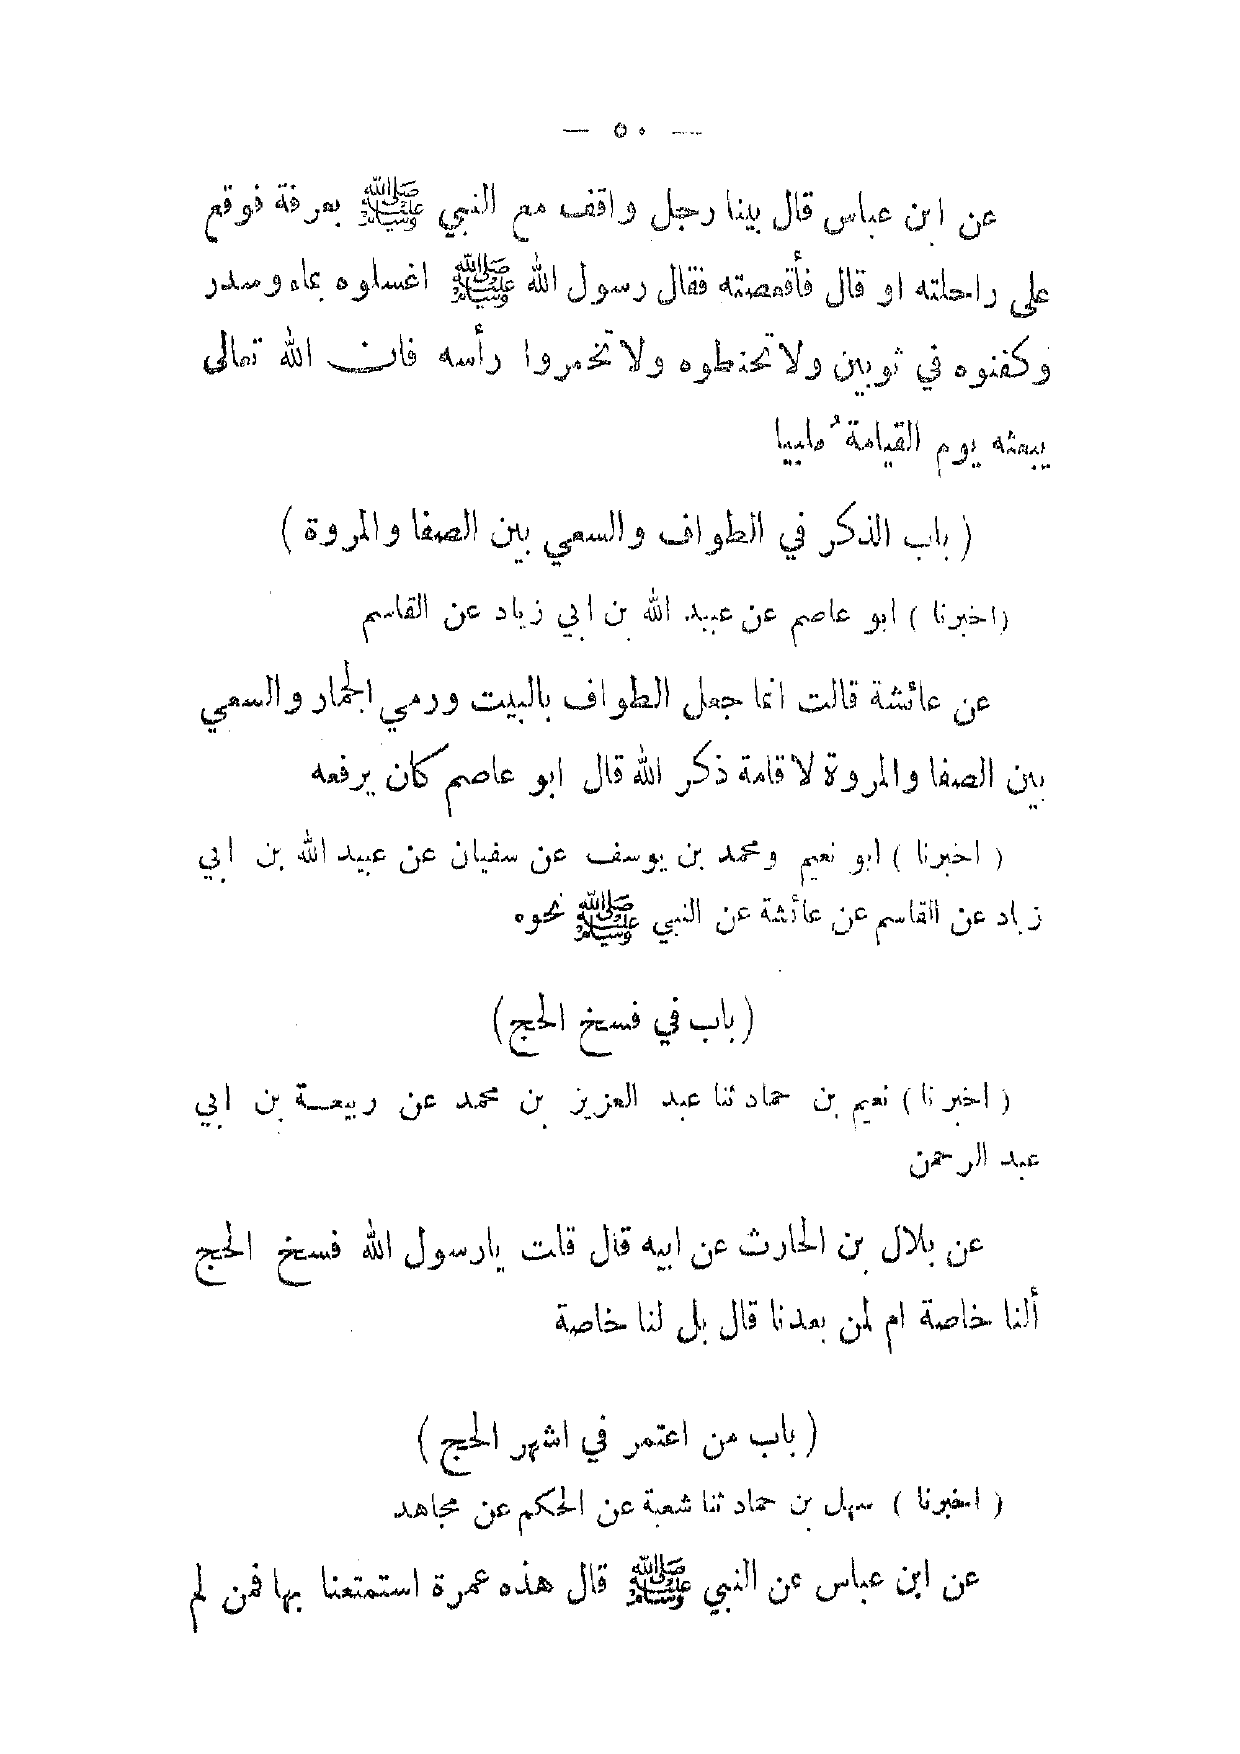 — ٥٠ —
عن ابن عباس قال بينا رجل واقف مع النبي ﷺ بعرفة فوقع
على راحلته او قال فأقعصته فقال رسول الله ﷺ اغسلوه بماء وسدر
وكفنوه في ثوبين ولا تحنطوه ولا تخمروا رأسه فان الله تعالى
يبعثه يوم القيامة ُملبيا
( باب الذكر في الطواف والسعي بين الصفا والمروة )
(اخبرنا ) ابو عاصم عن عبيد الله بن ابي زياد عن القاسم
عن عائشة قالت انما جعل الطواف بالبيت ورمي الجمار والسعي
بين الصفا والمروة لاقامة ذكر الله قال ابو عاصم كان يرفعه
( اخبرنا ) ابو نعيم ومحمد بن يوسف عن سفيان عن عبيد الله بن ابي
زياد عن القاسم عن عائشة عن النبي ﷺ نحوه
(باب في فسخ الحج)
( اخبرنا ) نعيم بن حماد ثنا عبد العزيز بن محمد عن ربيعة بن ابي
عبد الرحمن
عن بلال بن الحارث عن ابيه قال قلت يارسول الله فسخ الحج
ألنا خاصة ام لمن بعدنا قال بل لنا خاصة
( باب من اعتمر في اشهر الحج )
( اخبرنا ) سهل بن حماد ثنا شعبة عن الحكم عن مجاهد
عن ابن عباس عن النبي ﷺ قال هذه عمرة استمتعنا بها فمن لم